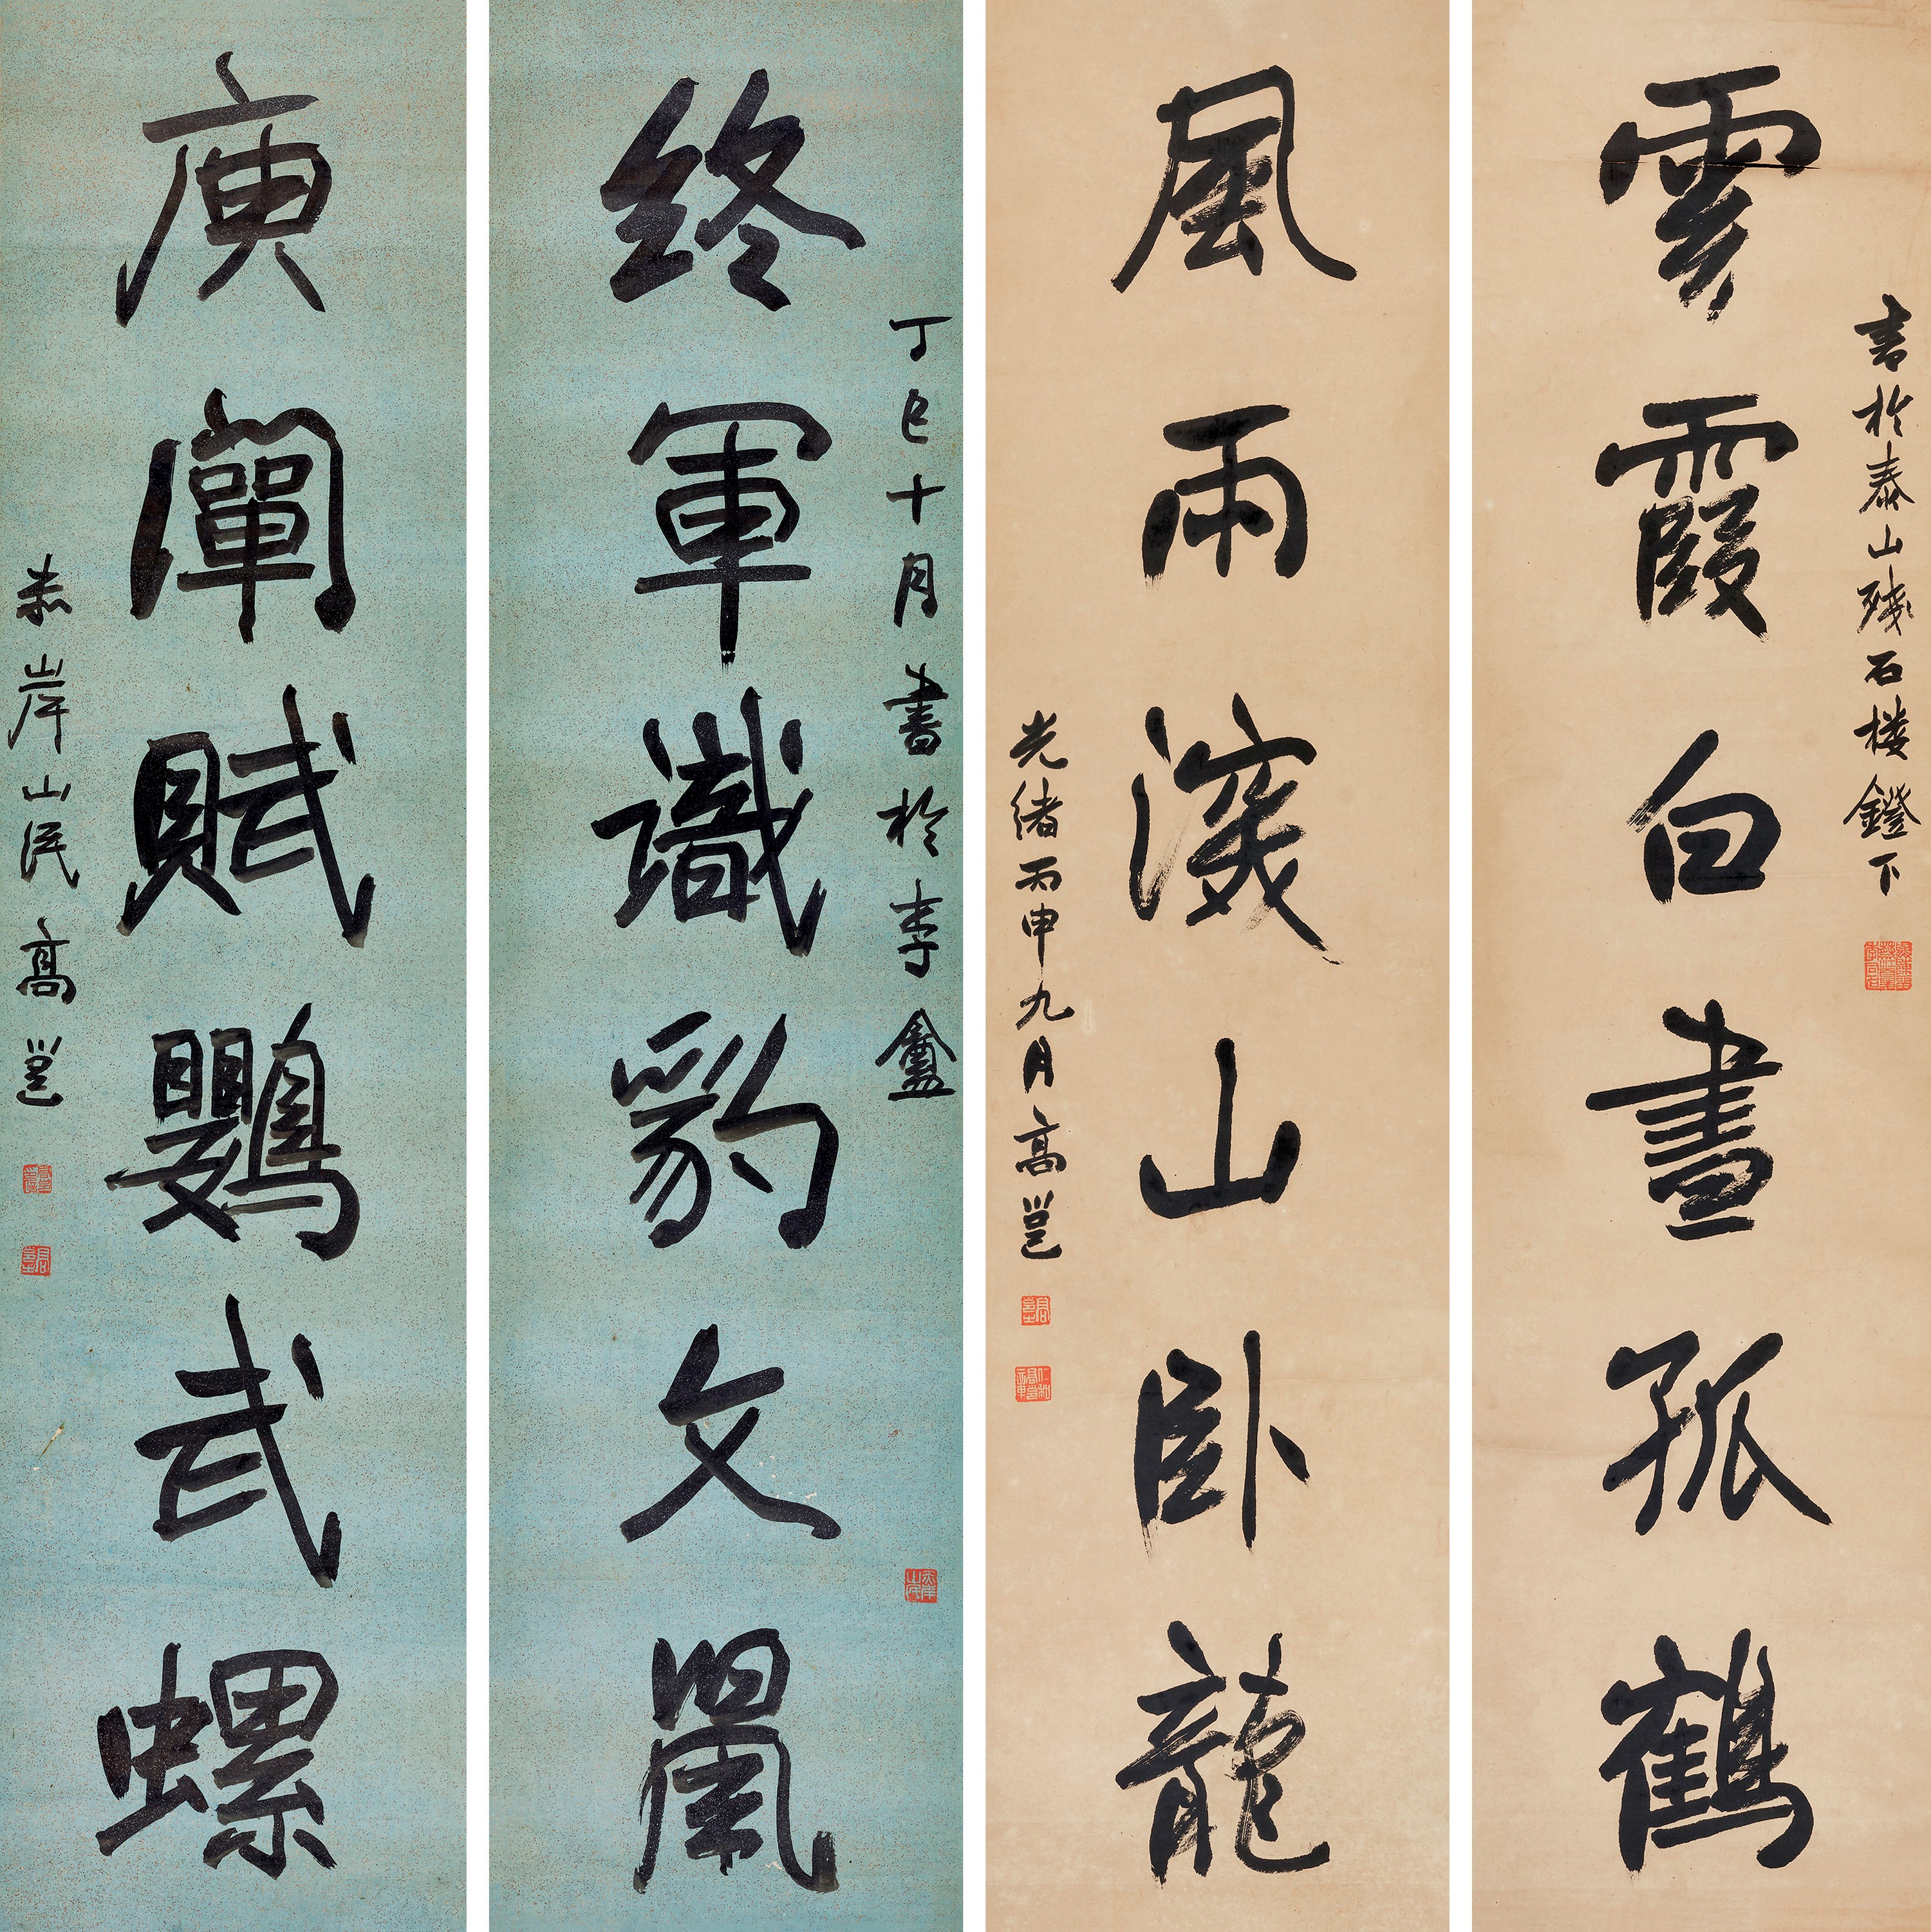 雲霞白晝孤鶴
書於泰山殘石楼鐙下
風雨深山卧龍
光緒丙申九月高邕
終軍識豹文鼠
丁巳十月書於李盦
赤岸山民
庾闡賦鸚武螺
赤岸山民高邕